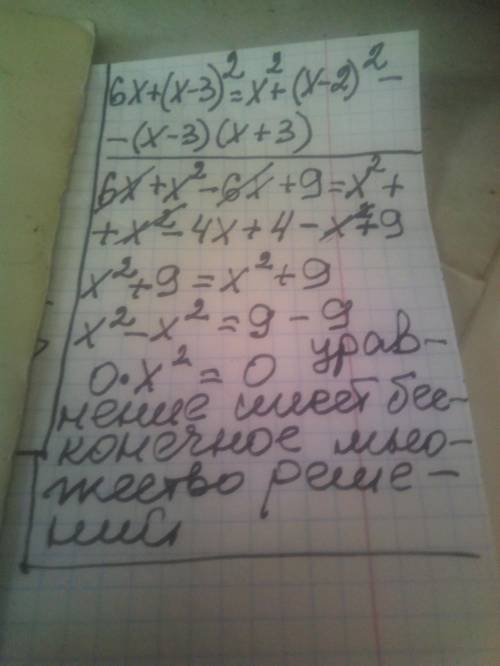 6x+(x-3)²=x²+(x-2)²-
-(x-3)(x+3)
6x+x²-6x+9=x²+
+x²-4x+4-x²+9
x²+9=x²+9
x²-x²=9-9
0·x²=0 урав-
нение имеет бес-
конечное мно-
жество реше-
ний